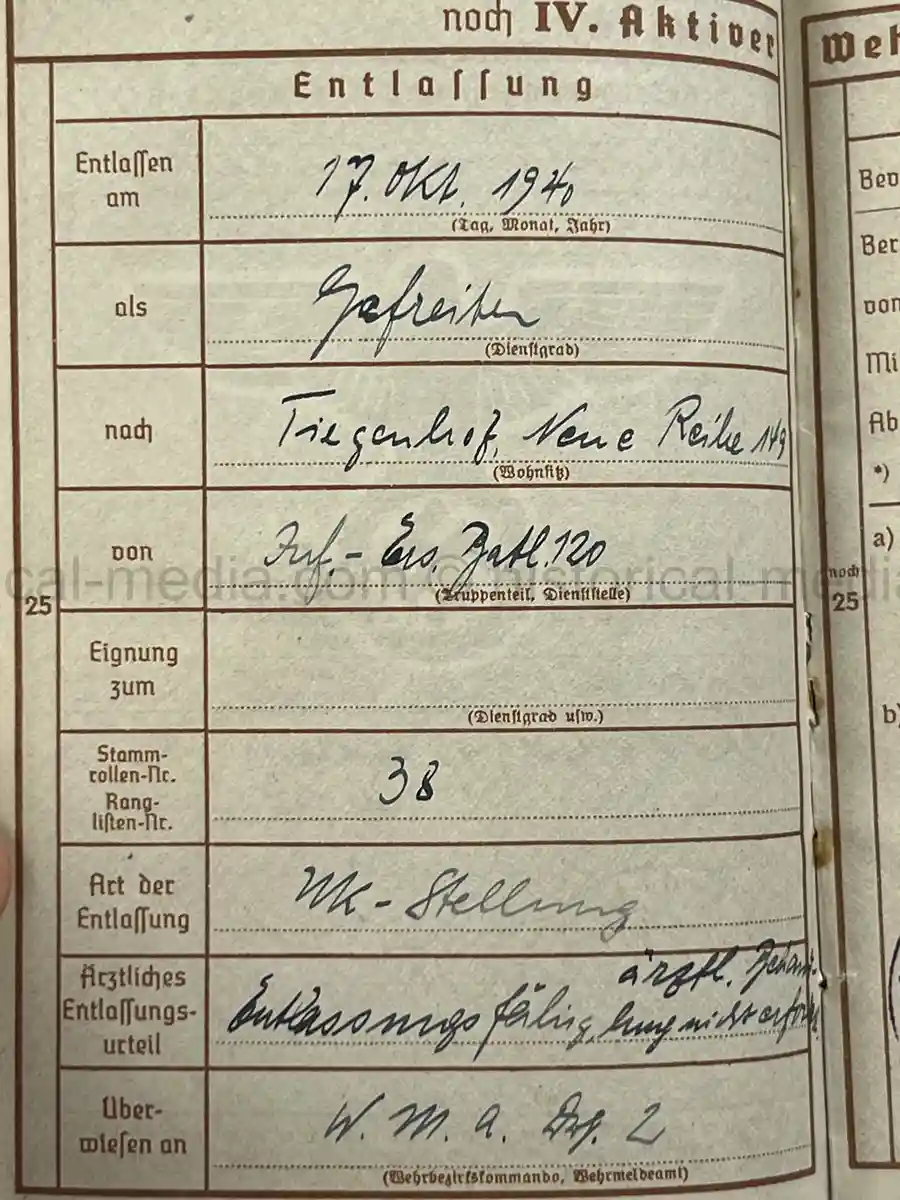 noch IV. Aktiver
Entlassung
Entlassen am
17. Okt. 1940
(Tag, Monat, Jahr)
als
Gefreiten
(Dienstgrad)
nach
Tiegenhof, Neue Reihe 149
(Wohnsitz)
von
Inf.- Ers. Batl. 120
(Truppenteil, Dienststelle)
25
Eignung
zum
(Dienstgrad usw.)
Stamm-
rollen-Nr.
Rang-
listen-Nr.
38
Art der
Entlassung
Uk-Stellung
Ärztliches
Entlassungs-
urteil
ärztl. Behand-
Entlassungsfähig, lung nicht erford.
Über-
wiesen an
W. M. A. Dzg. 2
(Wehrbezirkskommando, Wehrmeldeamt)
Weh
Beo
Ber
von
Mi
Ab
*)
a)
noch
25
b)
cal-media.com © historical-media